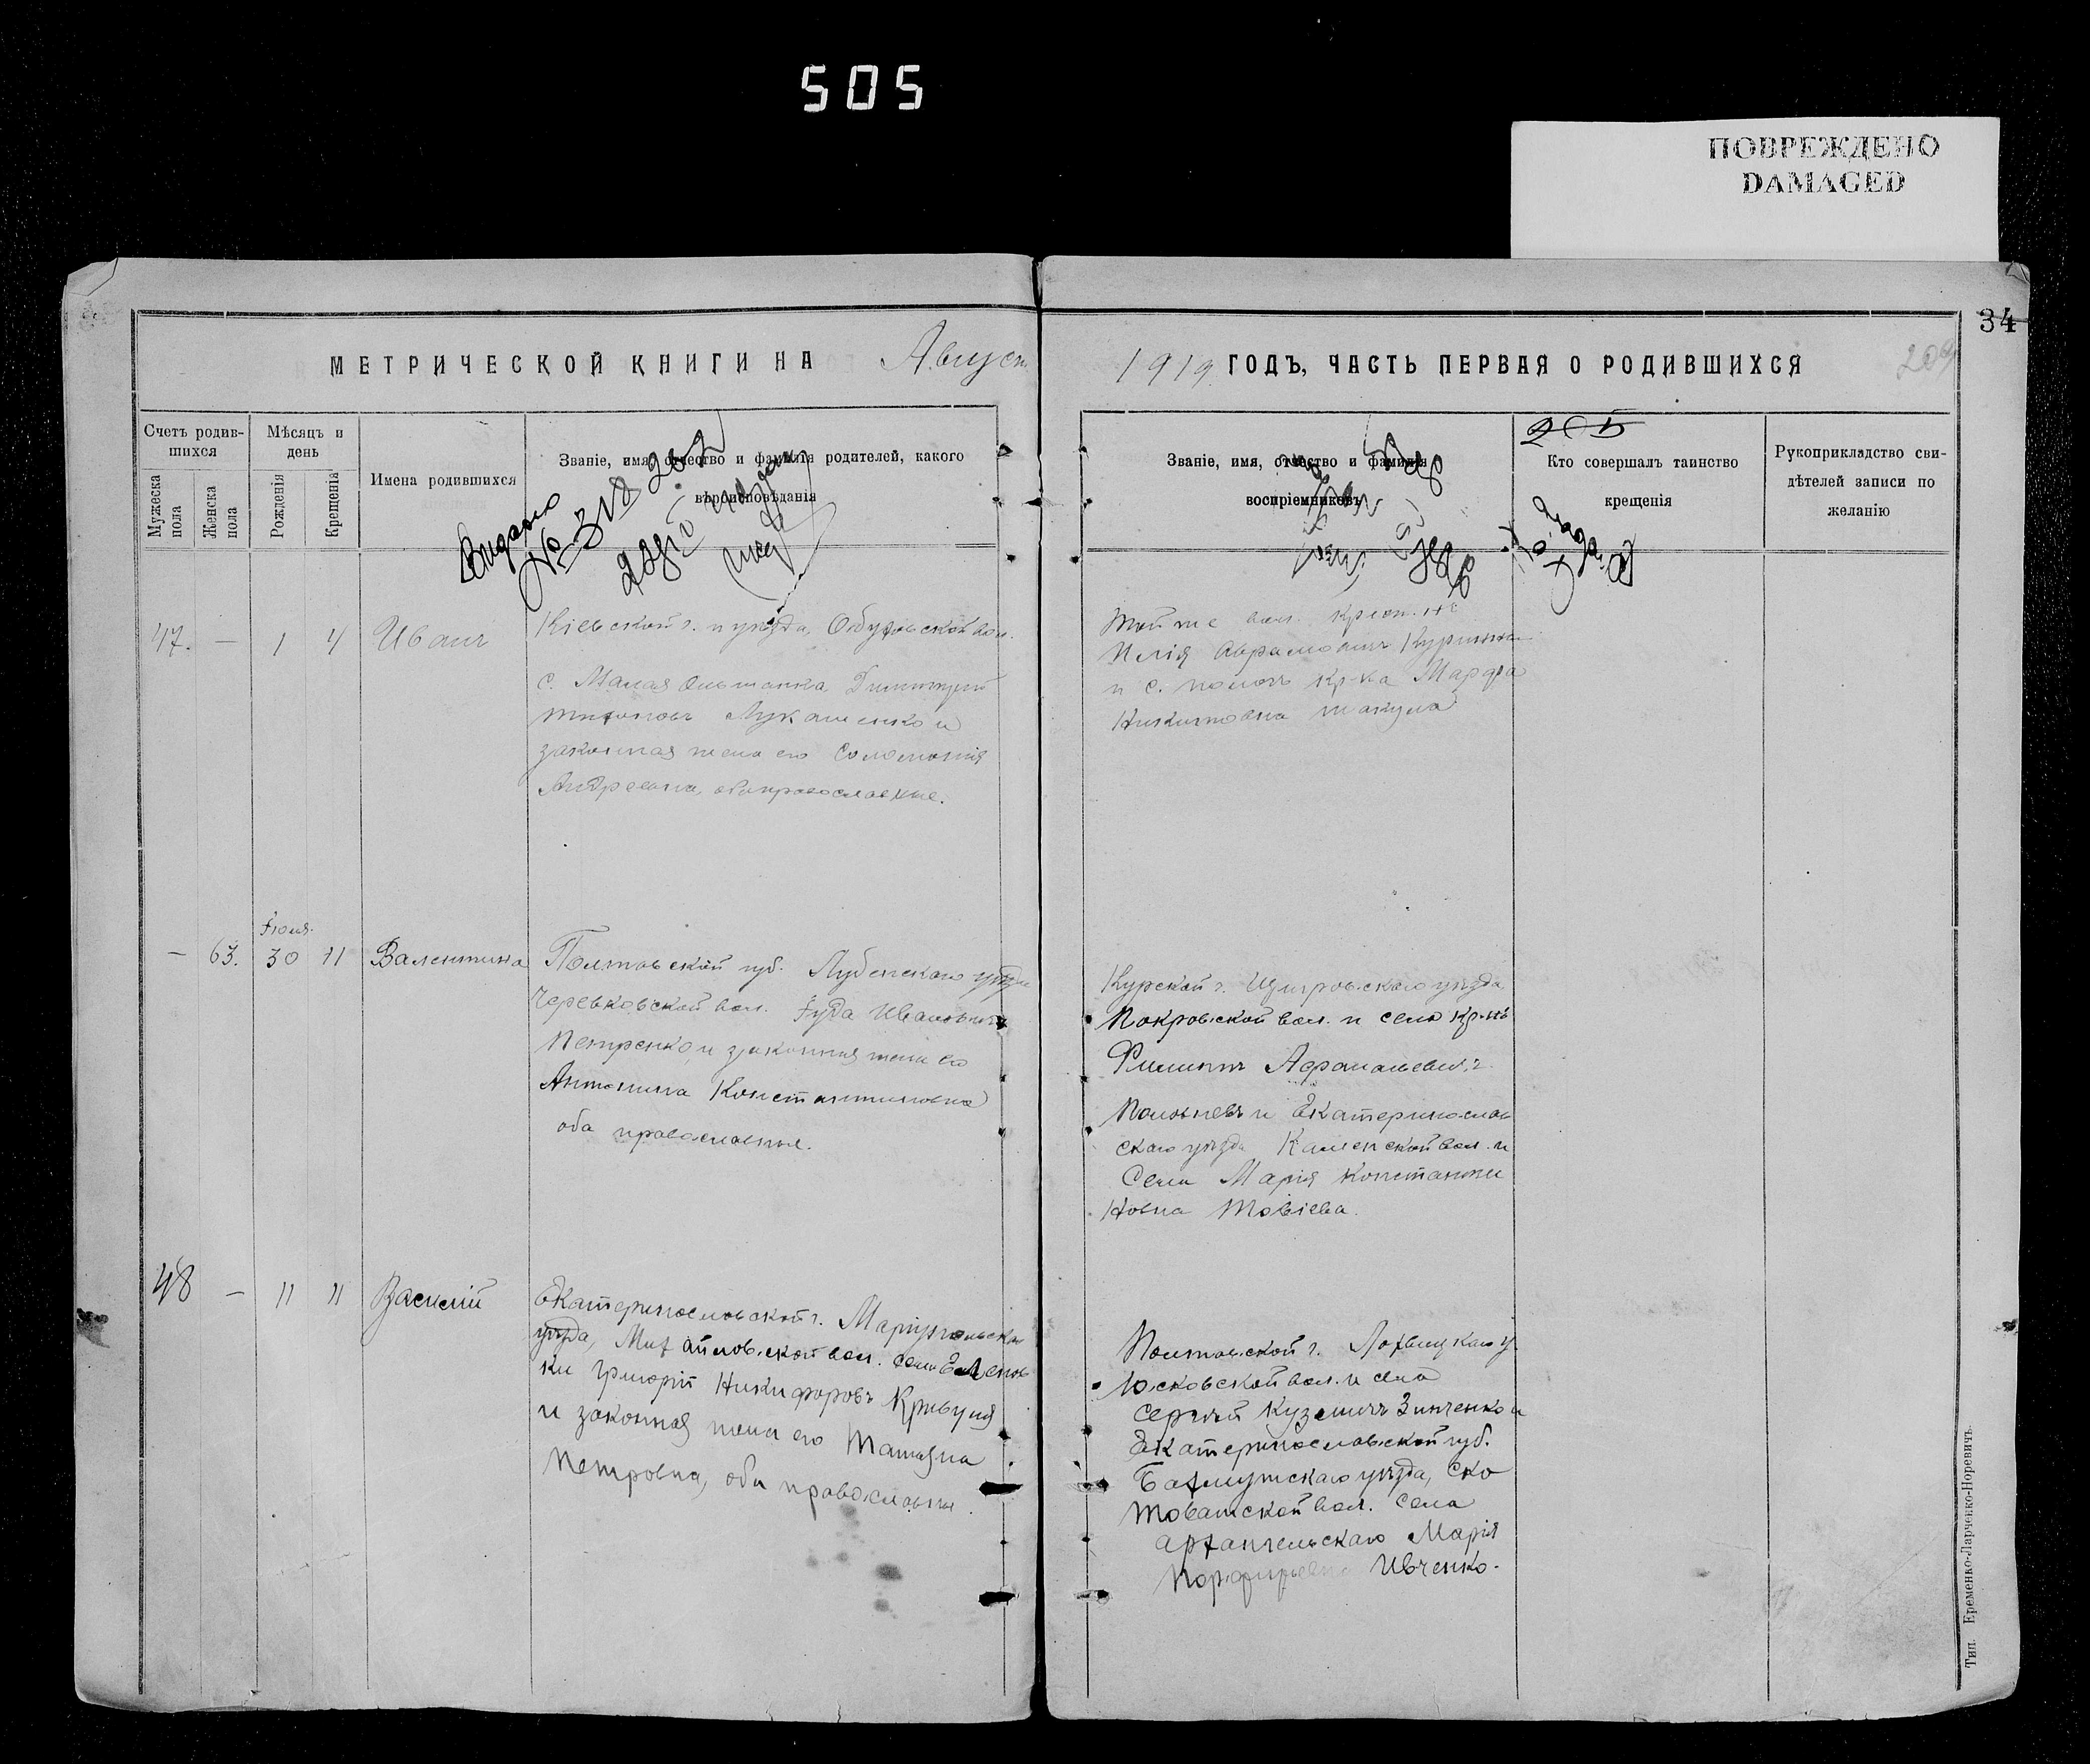 505
ПОВРЕЖДЕНО
DAMAGED
34
МЕТРИЧЕСКОЙ КНИГИ НА Август
1919 ГОДЪ, ЧАСТЬ ПЕРВАЯ О РОДИВШИХСЯ
209
Счетъ родив-
шихся
Мужеска
пола
Женска
пола
Мѣсяцъ и
день
Рожденія
Крещенія
Имена родившихся
Званіе, имя, отчество и фамилія родителей, какого
вѣроисповѣданія
Званіе, имя, отчество и фамилія
воспріемниковъ
205
Кто совершалъ таинство
крещенія
Рукоприкладство сви-
дѣтелей записи по
желанію
Видано
№
47. — 1 4 Иванъ
Кіевской г. и уѣзда, Обуховской вол.
с. Малая Ольшанка Димитрій
Лукашенко и
законная жена его Соломонія
Андреевна, оба православные.
Той же вол. крест-нъ
Илія Аврамовичъ
и с. кр-ка Марфа
Никитовна
— 63. Іюля 30 11 Валентина
Полтавской губ. Лубенскаго уѣзда
вол. Іуда Ивановичъ
Петренко и законная жена его
Антонина Константиновна
оба православные.
Курской г. Щигровскаго уѣзда
Покровской вол. и села кр-нъ
Филиппъ
и Екатеринослав
скаго уѣзда Каменской вол. и
села Марія Константи
новна
48 — 11 11 Василій
Екатеринославской г. Маріупольскаго
уѣзда, Михайловской вол. села Еленов
ки Григорій Никифоровъ Кривуля
и законная жена его Татіяна
Петровна, оба православные.
Полтавской г. Лохвицкаго у.
Юсковской вол. и села
Сергѣй Кузмичъ Зинченко и
Екатеринославской губ.
Бахмутскаго уѣзда, Ско
товатской вол. села
Архангельскаго Марія
Порфирьевна Ивченко.
Тип. Еременко-Ларченко-Норевичъ.